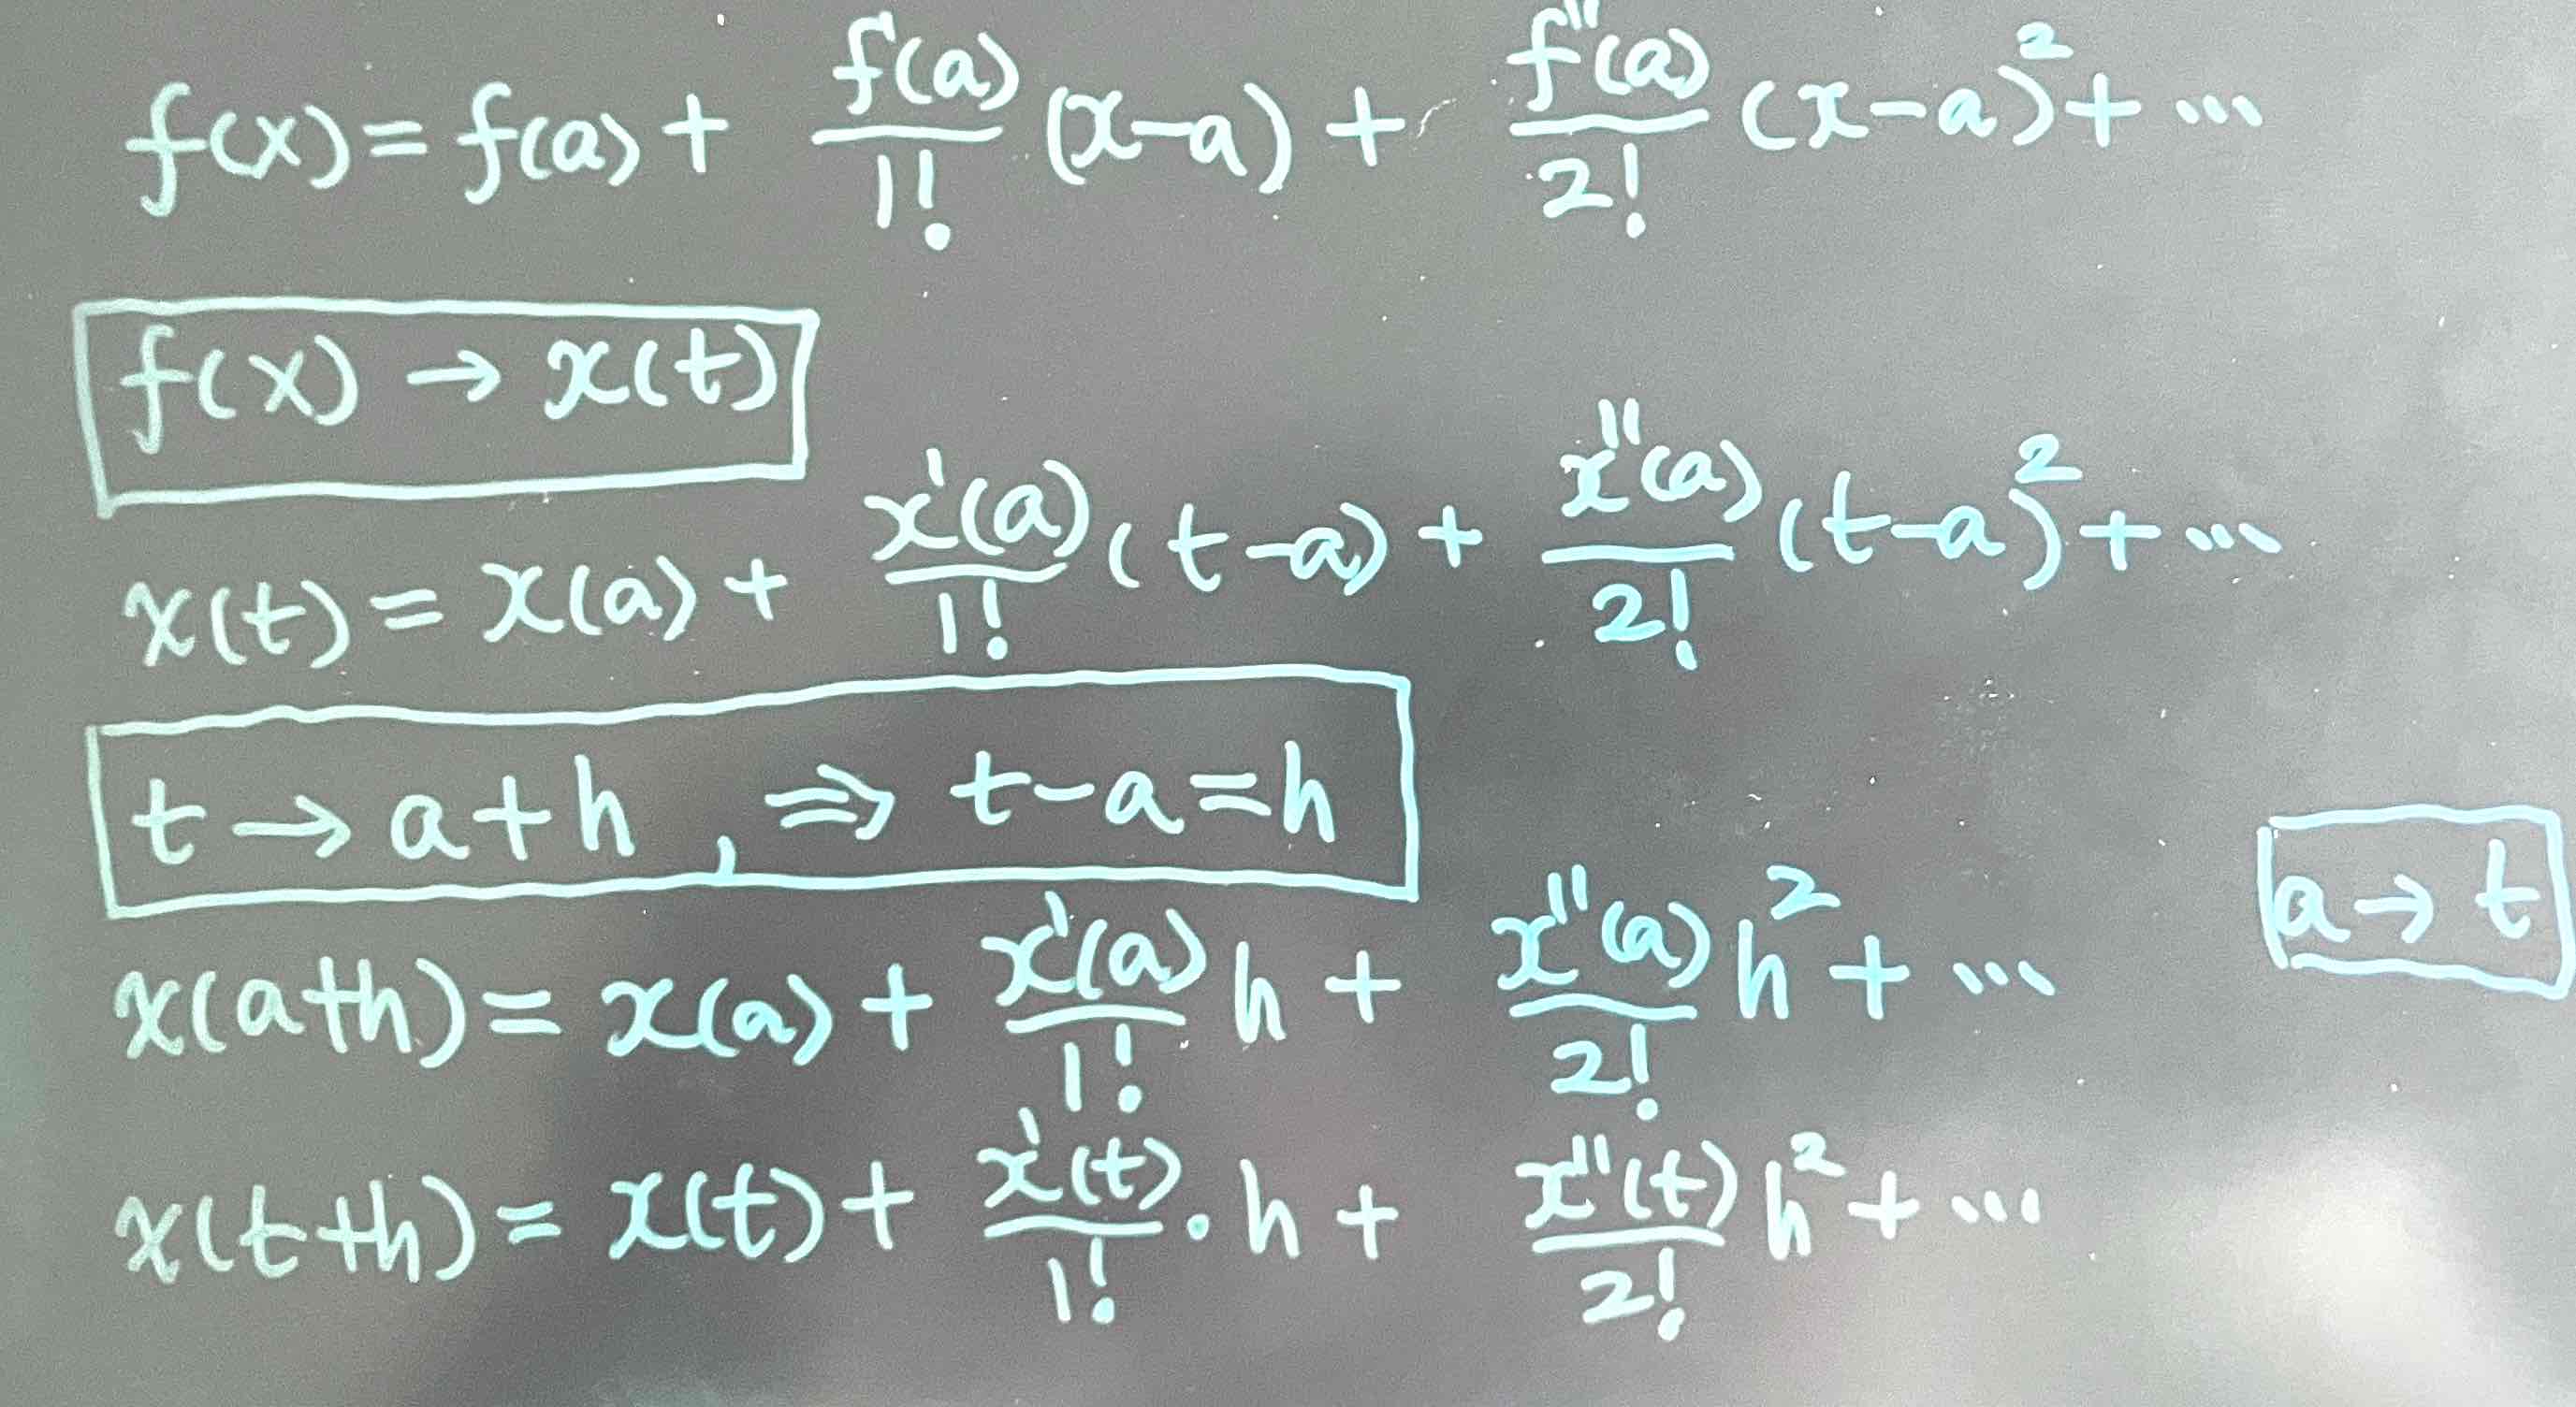 f(x) = f(a) + f'(a)/1! (x-a) + f''(a)/2! (x-a)² + ...
f(x) → x(t)
x(t) = x(a) + x'(a)/1! (t-a) + x''(a)/2! (t-a)² + ...
t → a+h , ⇒ t-a=h
a → t
x(a+h) = x(a) + x'(a)/1! h + x''(a)/2! h² + ...
x(t+h) = x(t) + x'(t)/1! · h + x''(t)/2! h² + ...